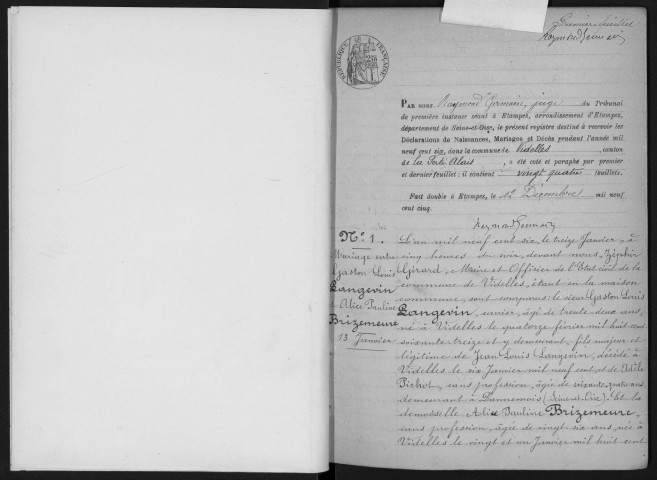 Premier feuillet
Raymond Germain
RÉPUBLIQUE FRANÇAISE
PAR NOUS Raymond Germain, juge du Tribunal
de première instance séant à Etampes, arrondissement d'Etampes,
département de Seine-et-Oise, le présent registre destiné à recevoir les
Déclarations de Naissances, Mariages et Décès pendant l'année mil
neuf cent six, dans la commune de Videlles, canton
de La Ferté Alais, a été coté et paraphé par premier
et dernier feuillet; il contient vingt quatre feuillets.
Fait double à Etampes, le 12 Décembre mil neuf
cent cinq.
Raymond Germain
N° 1.
Mariage entre
Gaston Louis
Langevin
& Alice Pauline
Brizemeure
13 Janvier
L'an mil neuf cent six, le treize Janvier, à
cinq heures du soir, devant nous Zéphir
Girard, Maire et Officier de l'Etat civil de la
commune de Videlles, étant en la maison
commune, sont comparus: le sieur Gaston Louis
Langevin, carrier, âgé de trente deux ans,
né à Videlles le quatorze février mil huit cent
soixante treize et y demeurant, fils majeur et
légitime de Jean Louis Langevin, décédé à
Videlles le six Janvier mil neuf cent, et de Adèle
Pichot, sans profession, âgée de soixante quatre ans,
demeurant à Dannemois (Seine et Oise). Et la
demoiselle Alice Pauline Brizemeure,
sans profession, âgée de vingt six ans, née à
Videlles le vingt et un Janvier mil huit cent